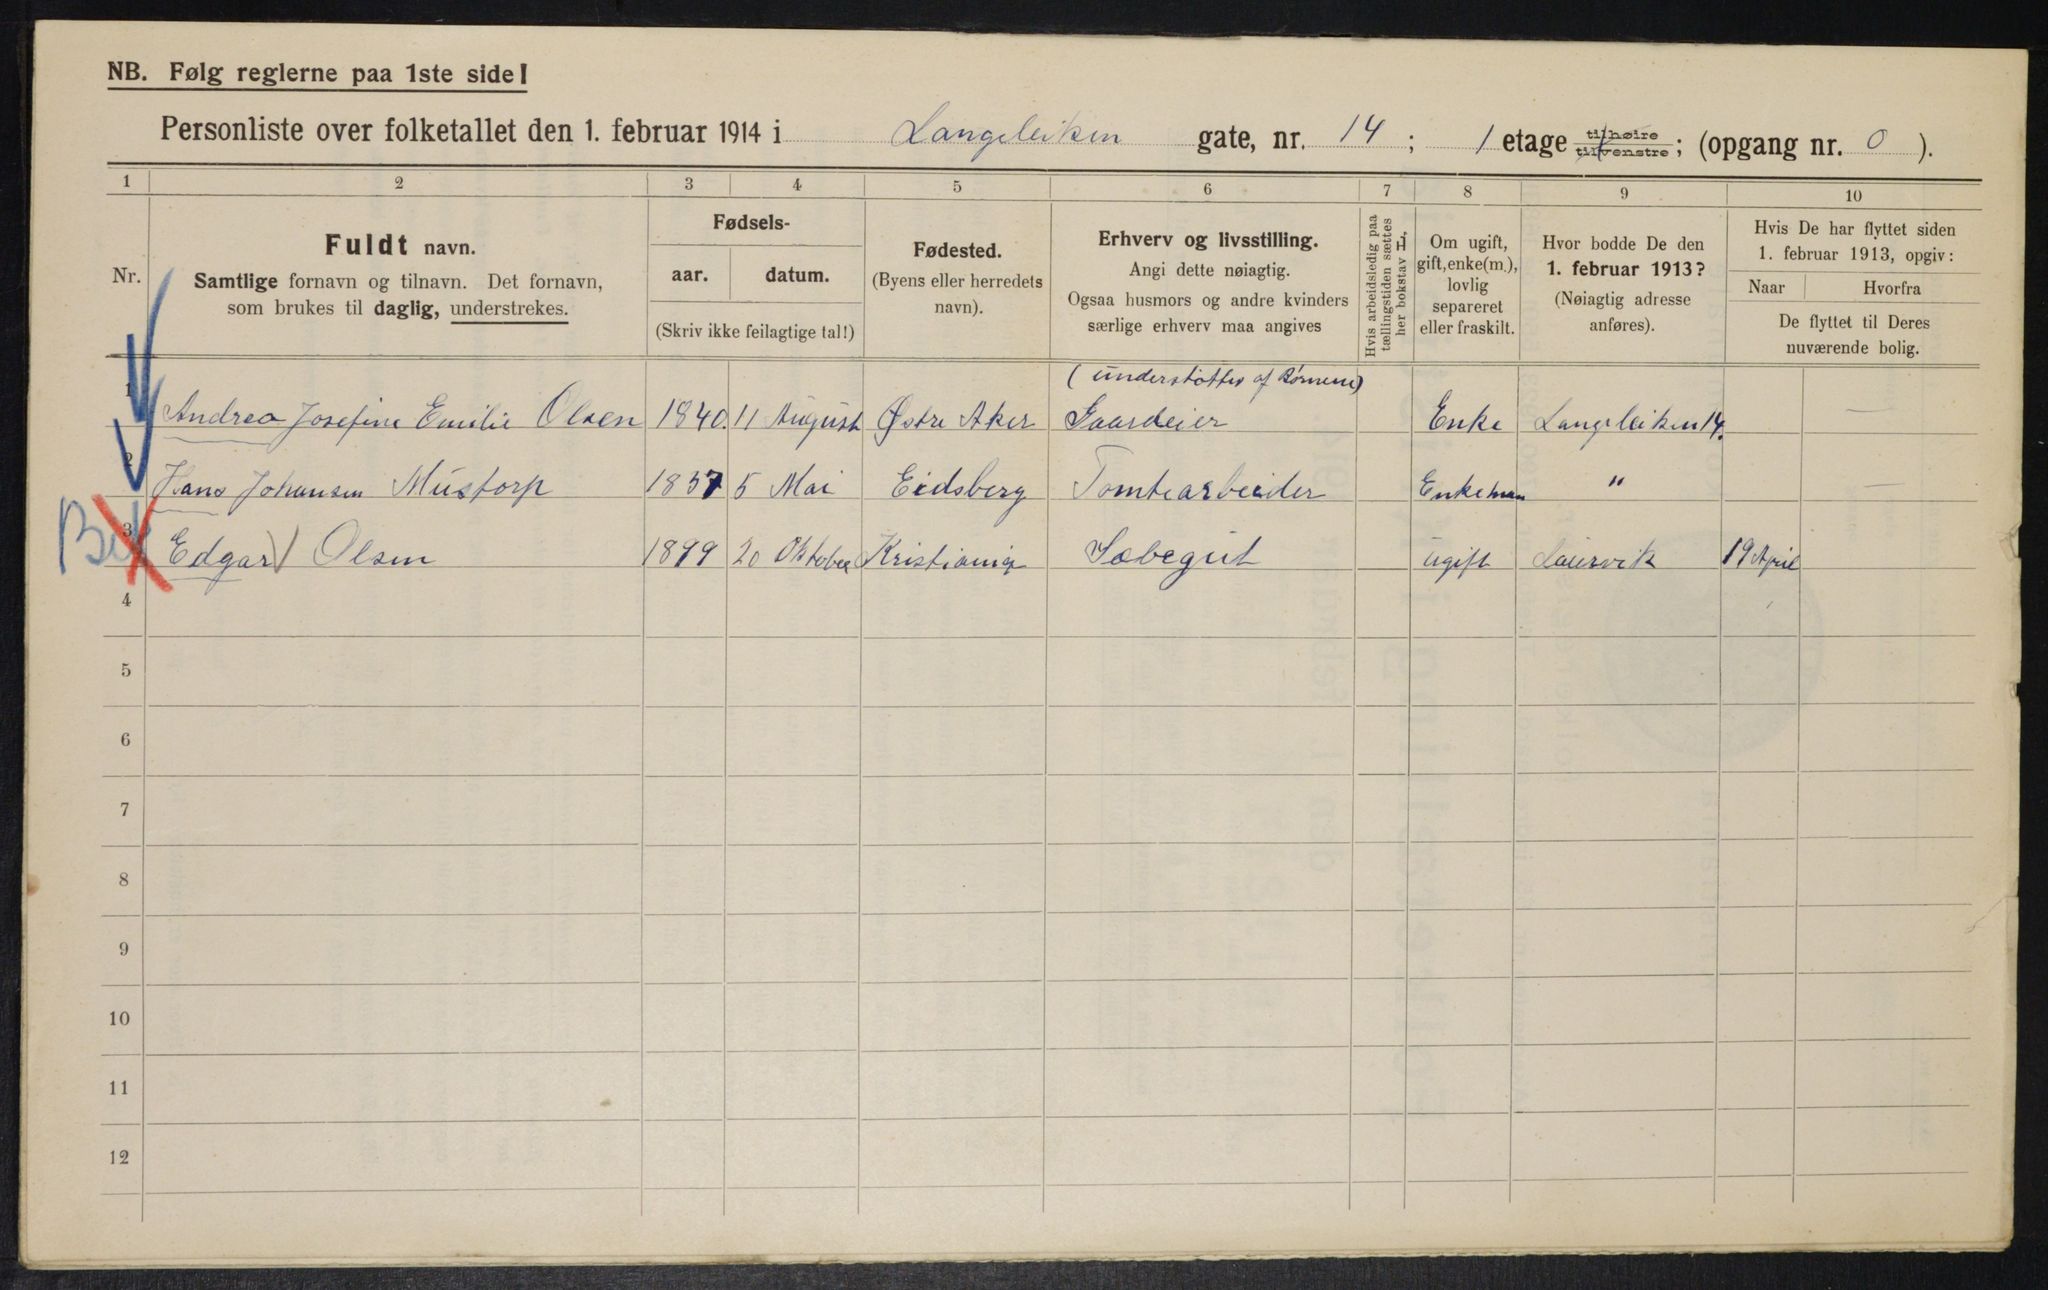 NB. Følg reglerne paa 1ste side!
Personliste over folketallet den 1. februar 1914 i Langeleiken gate, nr. 14; 1 etage til høire / til venstre; (opgang nr. 0 ).
1 2 3 4 5 6 7 8 9 10
Nr.
Fuldt navn.
Samtlige fornavn og tilnavn. Det fornavn,
som brukes til daglig, understrekes.
Fødsels-
aar. datum.
(Skriv ikke feilagtige tal!)
Fødested.
(Byens eller herredets
navn).
Erhverv og livsstilling.
Angi dette nøiagtig.
Ogsaa husmors og andre kvinders
særlige erhverv maa angives
Hvis arbeidsledig paa
tællingstiden sættes
her bokstav L.
Om ugift,
gift, enke(m.),
lovlig
separeret
eller fraskilt.
Hvor bodde De den
1. februar 1913?
(Nøiagtig adresse
anføres).
Hvis De har flyttet siden
1. februar 1913, opgiv:
Naar Hvorfra
De flyttet til Deres
nuværende bolig.
(understøttes af Børnene)
1 Andrea Josefine Emilie Olsen 1840. 11 August Østre Aker Gaardeier Enke Langeleiken 14. —
2 Hans Johansen Mustorp 1837 5 Mai Eidsberg Tomtearbeider Enkeman " —
3 Edgar Olsen 1899 20 Oktober Kristiania Løbegut ugift Laurvik 19 April
4
5
6
7
8
9
10
11
12